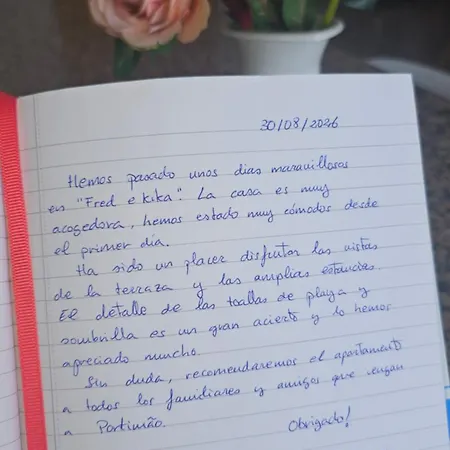 30/08/2026
Hemos pasado unos días maravillosos
en "Fred e kika". La casa es muy
acogedora, hemos estado muy cómodos desde
el primer día.
Ha sido un placer disfrutar las vistas
de la terraza y las amplias estancias.
El detalle de las toallas de playa y
sombrilla es un gran acierto y lo hemos
apreciado mucho.
Sin duda, recomendaremos el apartamento
a todos los familiares y amigos que vengan
a Portimão.
Obrigado!